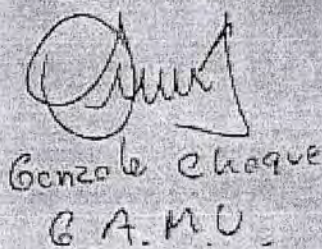 Gonzalo Choque
G A.M.U.